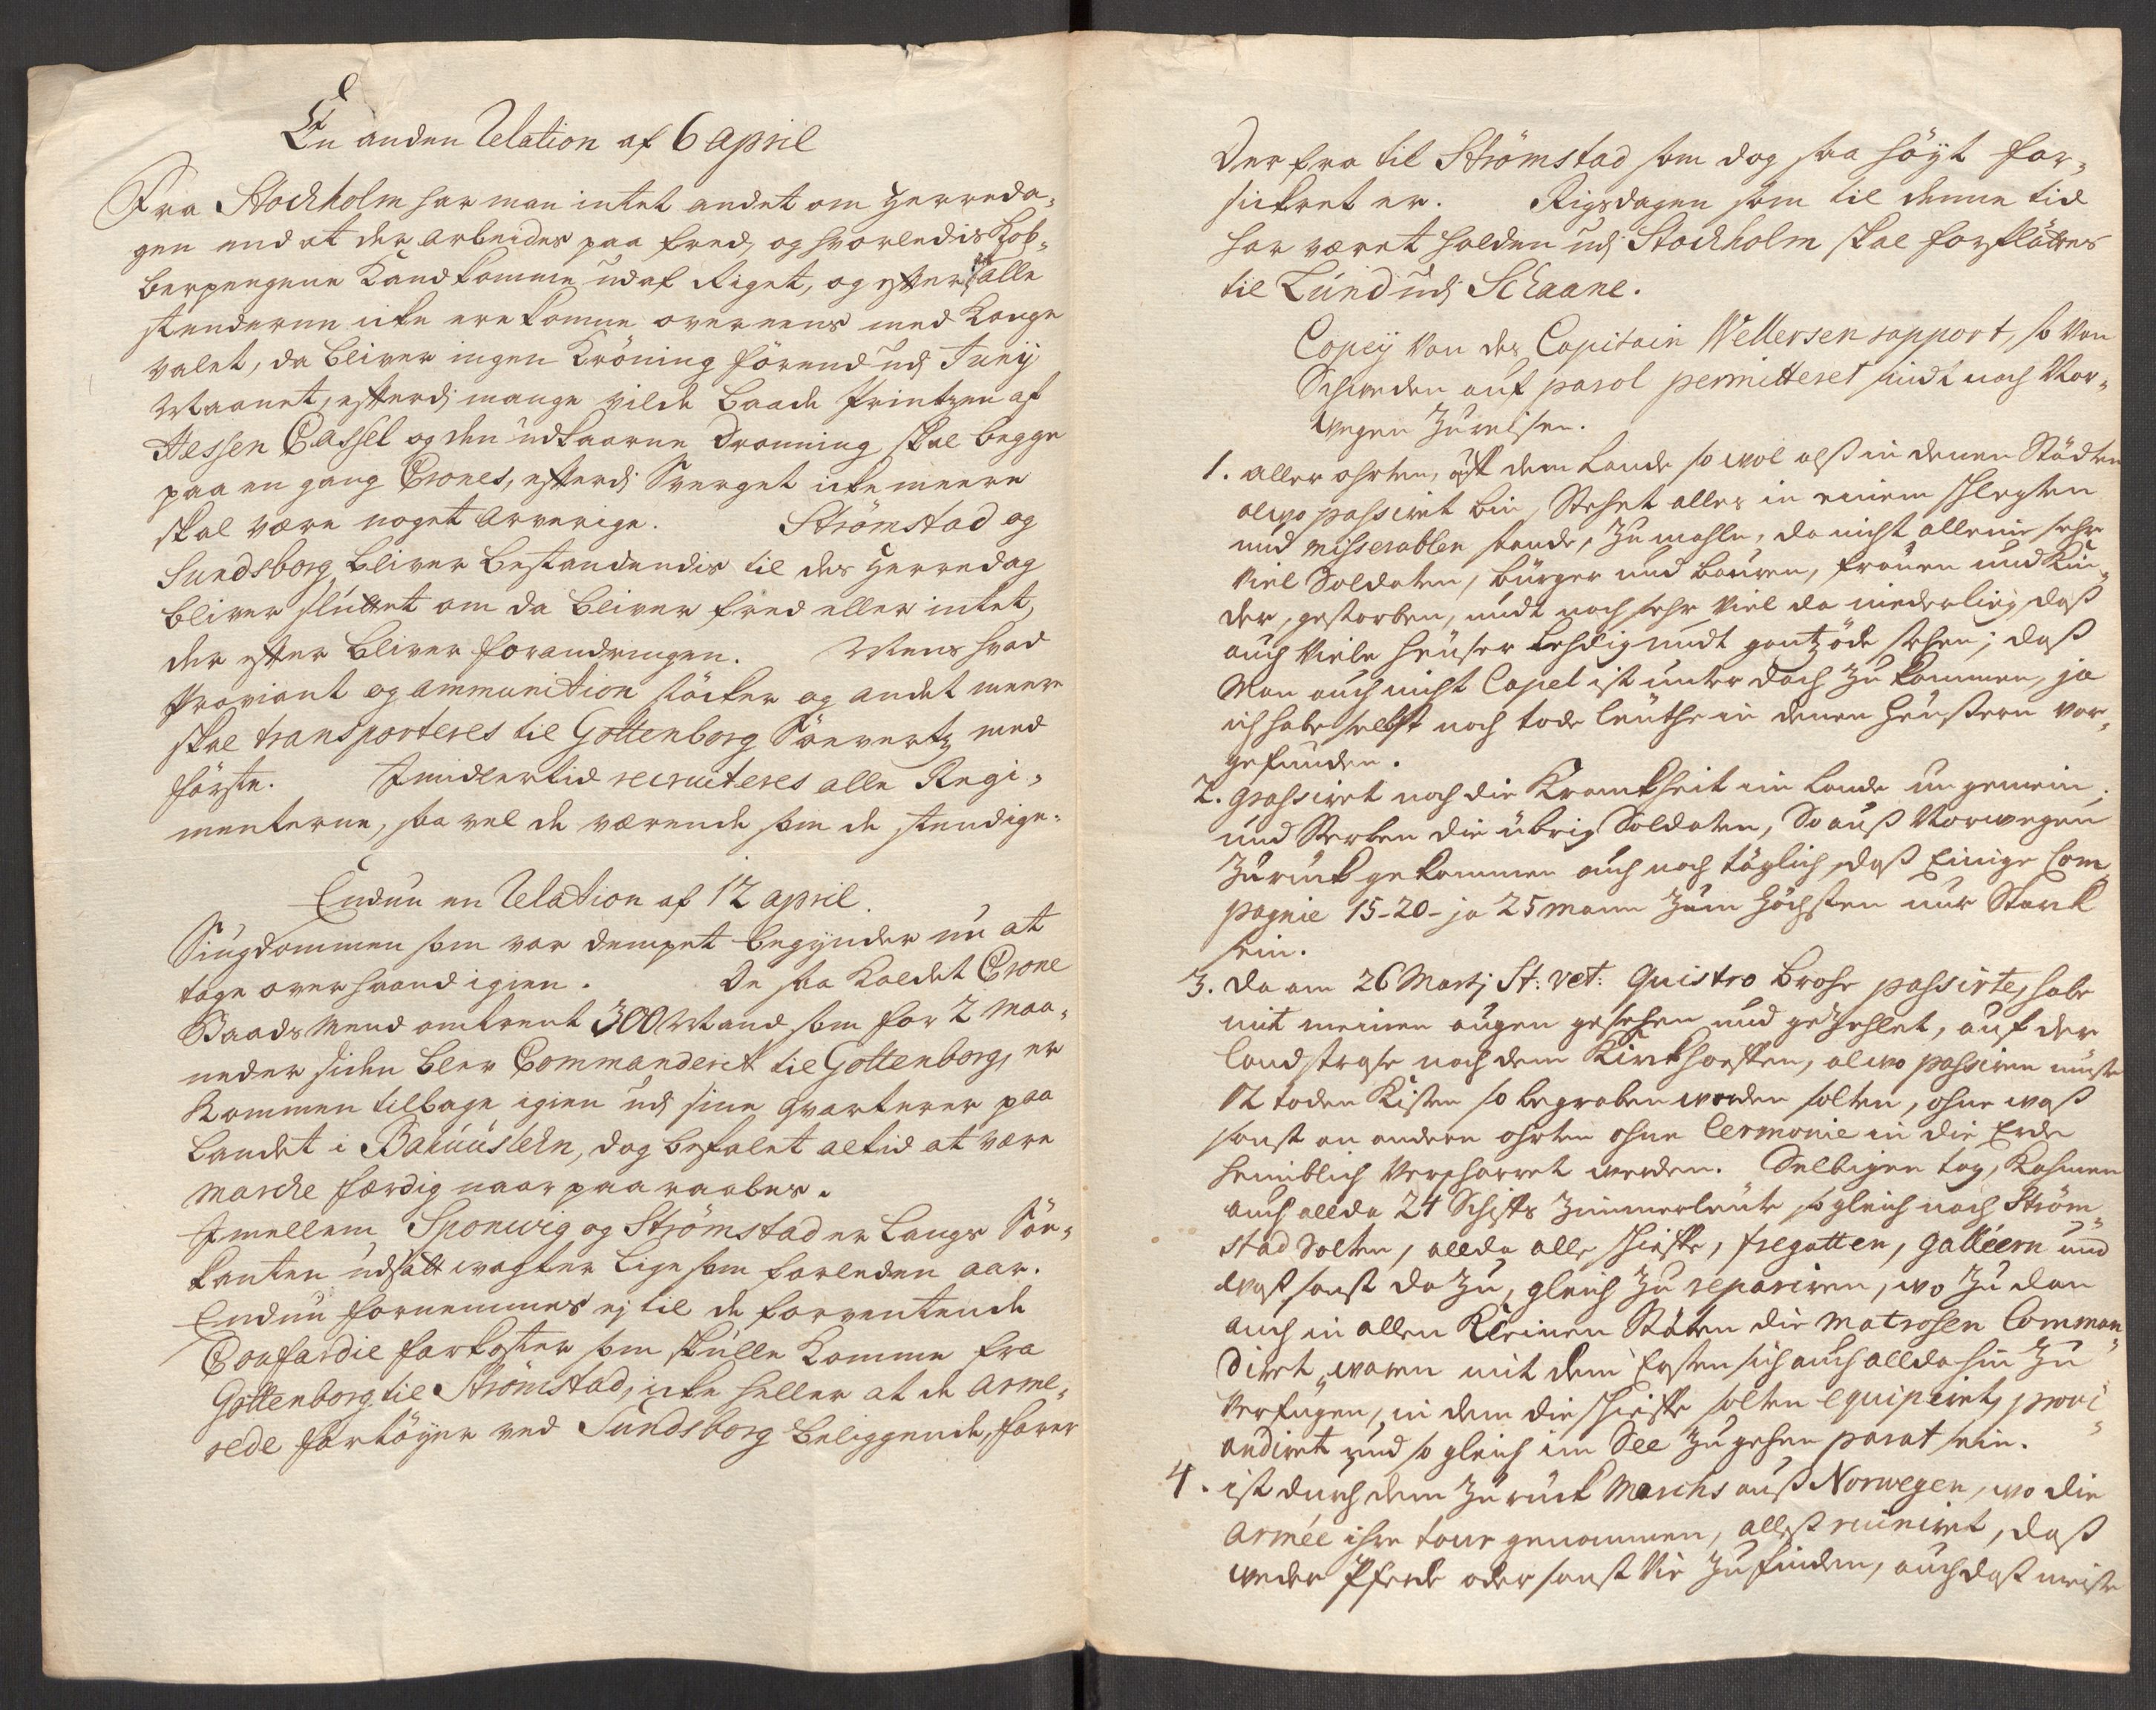 En anden Relation af 6 april
Fra Stockholm har man intet andet om Herreda-
gen end at der arbeides paa fred, og hvorledis Kob-
berpengene Kand komme ud af Riget, og efter at alle
stenderne icke ere komne overeens med Konge
valet, da bliver ingen Kröning förend udj Junij
Maanet, efterdj mange vilde baade Printzen af
Hessen Cassel og den udkaarne Dronning skal begge
paa en gang Crones, efterdj Sverget icke meere
skal være noget Arverige. Strömstad og
Sundsborg bliver bestandendis til des Herredag
bliver sluttet om da bliver fred eller intet,
der efter bliver forandringen. Mens hvad
Proviant og ammunition stöcker og andet meere
skal transporteres til Gottenborg Söevertz med
förste. Imidlertid recruiteres alle Regi-
menterne, saa vel de værende som de stendige.
Endnu en Relation af 12 april.
Siugdommen som var dempet begynder nu at
tage overhaand igien. De saa kaldet Crone
Baads Mend omtrent 300 Mand som for 2 Maa-
neder siden blev Commanderet til Gottenborg, er
Kommen tilbage igien udj sine qvarterer paa
Landet i Bahuuslehn, dog befalet altid at være
Marche færdig naar paa raabes.
Imellem Sponwig og Strömstad er langs Söe-
kanten udsatt wagter lige som forleden aar.
Endnu fornemmes ej til de forventende
Coufardie farkoster som skulle komme fra
Gottenborg til Strömstad, icke heller at de arme-
rede fartöyer ved Sundsborg beliggende, farer
Der fra til Strömstad som dog saa höyt for-
sickret er. Rigsdagen som til denne tid
har været holden udj Stockholm skal forflöttes
til Lund udj Schaane.
Copey von des Capitain Wellersen rapport, so von
Schweden auf parol permitteret sindt nach Nor-
wegen zu reisen.
1. aller ohrten, auf dem Lande so wol alß in denen Städten
alwo passiret bin, Stehet alles in einem schlegten
und misserablen stande, Zumahle, da nicht alleine sehr
viel Soldaten, Bürger und bauren, frauen und Kin-
der, gestorben, undt noch sehr viel da niederlieg, daß
auch viele Heuser lehdig undt gantz öde stehen; daß
Man auch nicht Capel ist unter dach zu kommen, ja
ich habe selbst noch tode leuthe in denen Heußern vor-
gefunden.
2. grassiret noch die Kranckheit im Lande ungemein,
und Sterben die übrig Soldaten, So auß Norwegen
zurück gekommen auch noch täglich, daß Einige Com-
pagnie 15-20- ja 25 mann zum höchsten nur Starck
sein.
3. da am 26 Martj St: vet: Quistro Brohe passirte, habe
mit meinen augen gesehen und gezehlet, auf der
landstrase nach dem Kirckhoffen, alwo passiren muste
12 toden Kisten so begraben worden solten, ohne waß
sonst an andern ohrten ohne Cermonie in die Erde
heimblich verscharret werden. Selbigen tag, Kahmen
auch allda 24 Schiffs Zimmerleute so gleich nach Ström-
stad solten, allda alle schieffe, fregatten, galléern und
waß sonst da zu, gleich zu repariren, wo zu dan
auch in allen Kleinen Stäten die Matrosen Comman-
diret waren mit dem Ersten sich auch allda hin zu
verfügen, in dem die schieffe solten equipiret, provi-
andiret und so gleich im See zu gehen parat sein.
4. ist durch dem Zurück Marchs auß Norwegen, wo die
Armée ihre tour genommen, alleß ruiniret, daß
weder Pferde oder sonst Vie zu finden, auch daß meiste